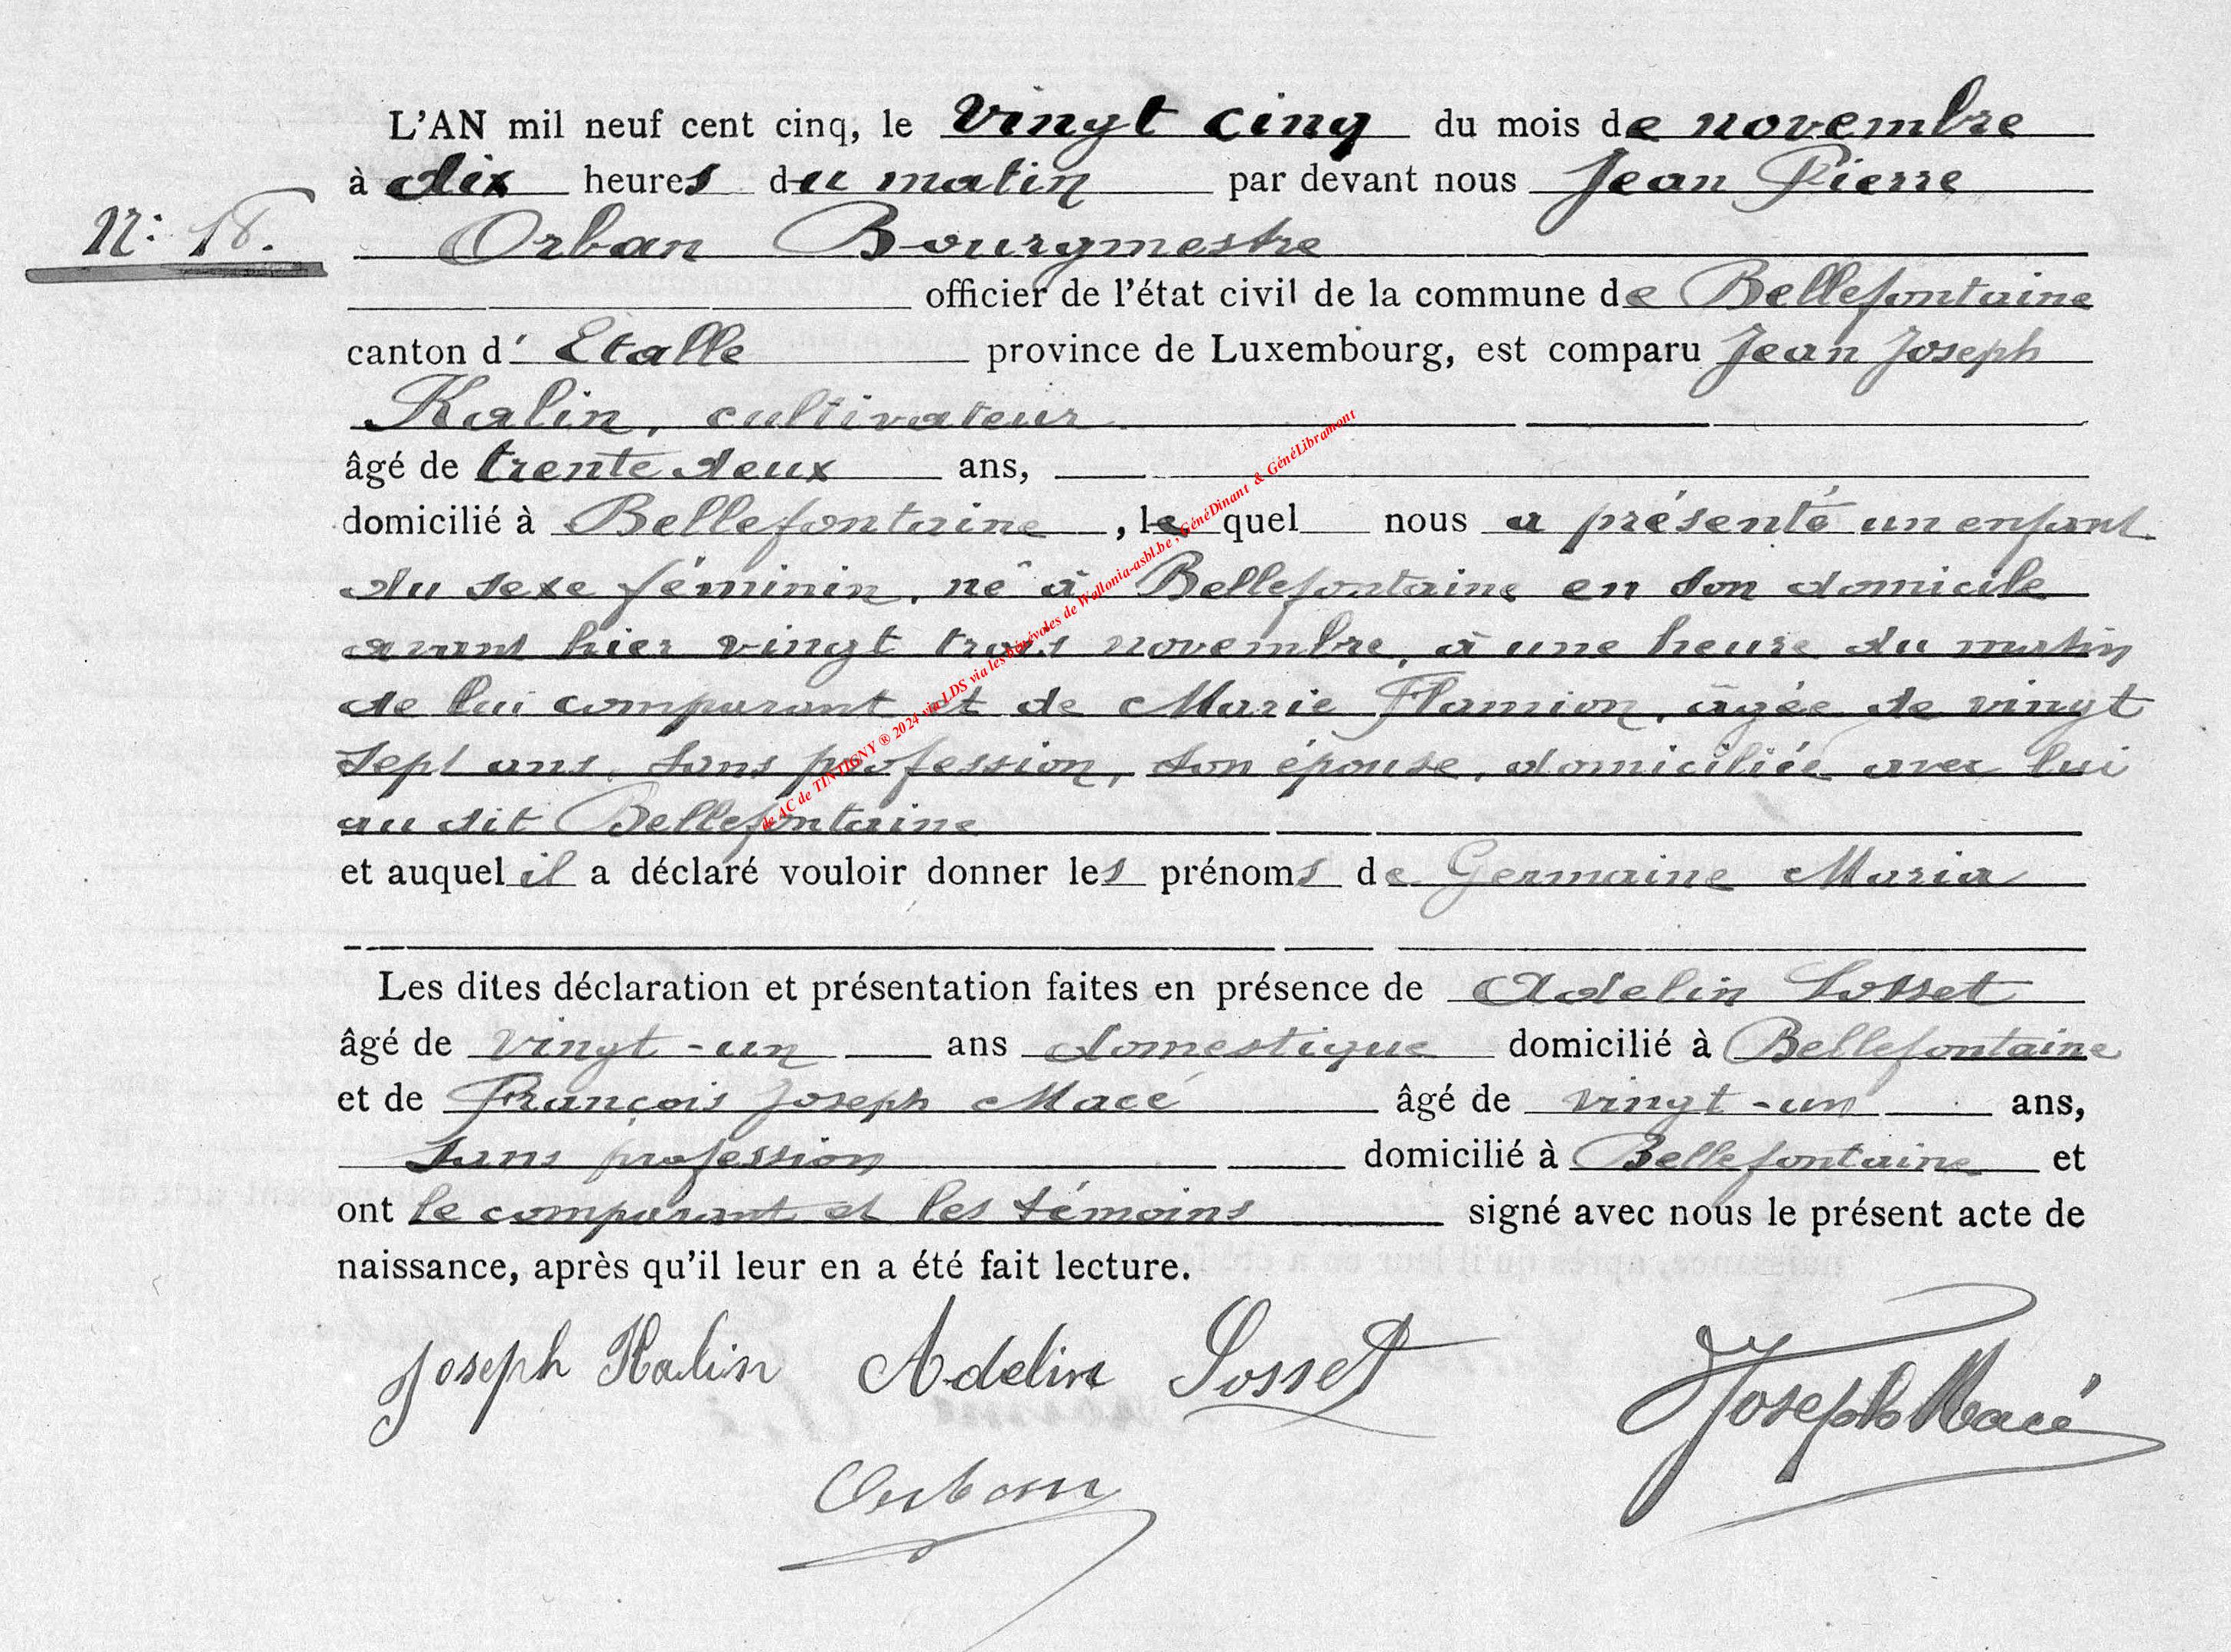 L'AN mil neuf cent cinq, le vingt cinq du mois de novembre
à dix heures du matin par devant nous Jean Pierre
N: 18.
Orban Bourgmestre
officier de l'état civil de la commune de Bellefontaine
canton d' Etalle province de Luxembourg, est comparu Jean Joseph
Kalin, cultivateur
âgé de trente deux ans,
domicilié à Bellefontaine, lequel nous a présenté un enfant
du sexe féminin, né à Bellefontaine en son domicile
avant hier vingt trois novembre, à une heure du matin
de lui comparant et de Marie Flamion, âgée de vingt
sept ans, sans profession, son épouse, domiciliée avec lui
au dit Bellefontaine
et auquel il a déclaré vouloir donner les prénoms de Germaine Maria
Les dites déclaration et présentation faites en présence de Adelin Sosset
âgé de vingt-un ans domestique domicilié à Bellefontaine
et de François Joseph Macé âgé de vingt-un ans,
sans profession domicilié à Bellefontaine et
ont le comparant et les témoins signé avec nous le présent acte de
naissance, après qu'il leur en a été fait lecture.
Joseph Kalin Adelin Sosset Joseph Macé
Orban
de AC de TINTIGNY ® 2024 via LDS via les bénévoles de Wallonia-asbl.be, GénéDinant & GénéLibramont